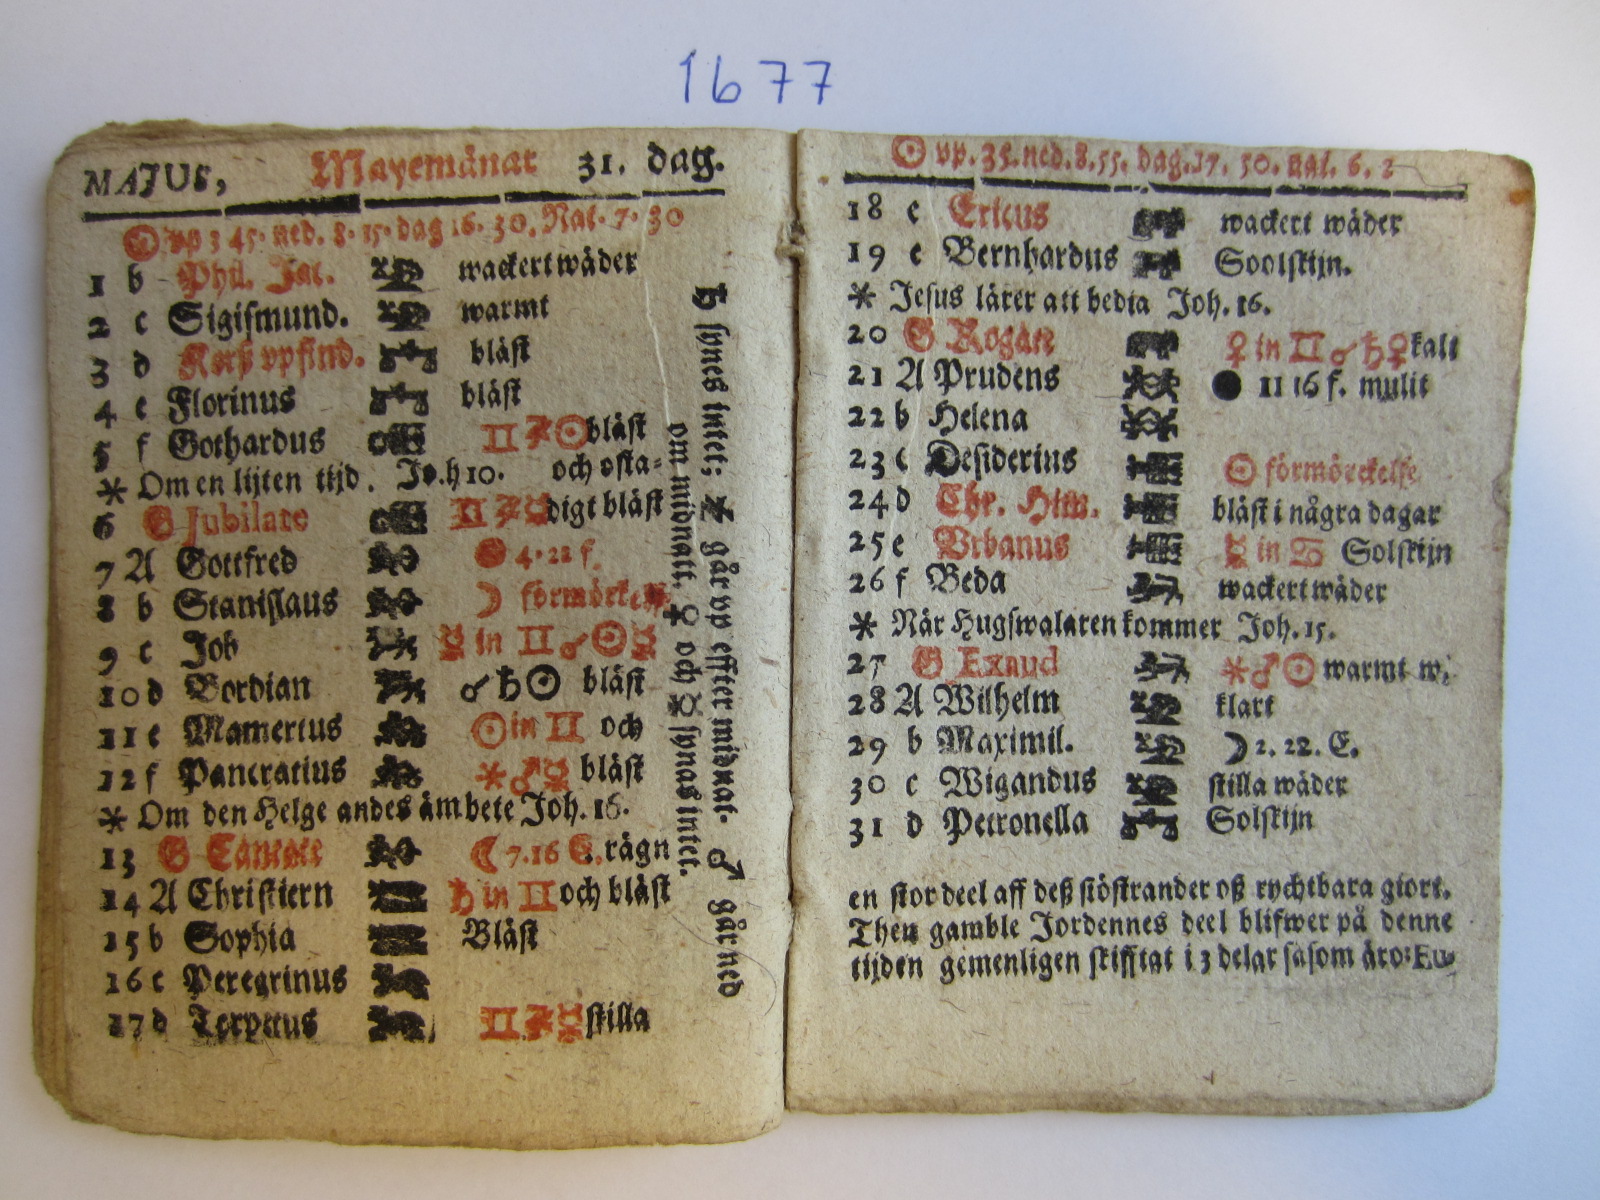 1677
MAJUS, Mayemånat 31. dag.
☉ vp 3 45. ned. 8. 15. dag 16. 30. Nat. 7. 30
1 b Phil. Jac. wackert wäder
2 c Sigismund. warmt
3 d Korß vpfind. blåst
4 e Florinus blåst
5 f Gothardus ♊ ☉ blåst
* Om en lijten tijd. Joh 10. och osta-
6 G Jubilate ♊ ☿ digt blåst
7 A Gottfred 4. 22 f.
8 b Stanislaus ☽ förmörckelse
9 c Job ☿ in ♊ ☌ ☉ ☿
10 d Gordian ☌ ♄ ☉ blåst
11 e Mamertus ☉ in ♊ och
12 f Pancratius * ♂ ☿ blåst
* Om den Helge andes ämbete Joh. 16.
13 G Cantate ☾ 7. 16 E. rägn
14 A Christiern ♄ in ♊ och blåst
15 b Sophia Blåst
16 c Peregrinus
17 d Torpetus ♊ ☿ stilla
♄ synes intet; ♃ går vp effter midnat. ♂ går ned
om midnatt. ♀ och ☿ synas intet.
☉ vp. 35. ned. 8. 55. dag. 17. 50. nat. 6. 2
18 e Ericus wackert wäder
19 e Bernhardus Soolskijn.
* Jesus lärer att bedia Joh. 16.
20 G Rogate ♀ in ♊ ☌ ♄ ♀ kalt
21 A Prudens ● 11 16 f. mulit
22 b Helena
23 c Desiderius ☉ förmörckelse
24 d Chr. Him. blåst i några dagar
25 e Vrbanus ☿ in ♋ Solskijn
26 f Beda wackert wäder
* När Hugswalaren kommer Joh. 15.
27 G Exaud * ♂ ☉ warmt w.
28 A Wilhelm klart
29 b Maximil. ☽ 2. 22. E.
30 c Wigandus stilla wäder
31 d Petronella Solskijn
en stor deel aff deß stöstrander oß rychtbara giort.
Then gamble Jordennes deel blifwer på denne
tijden gemenligen skifftat i 3 delar såsom äro: Eu-